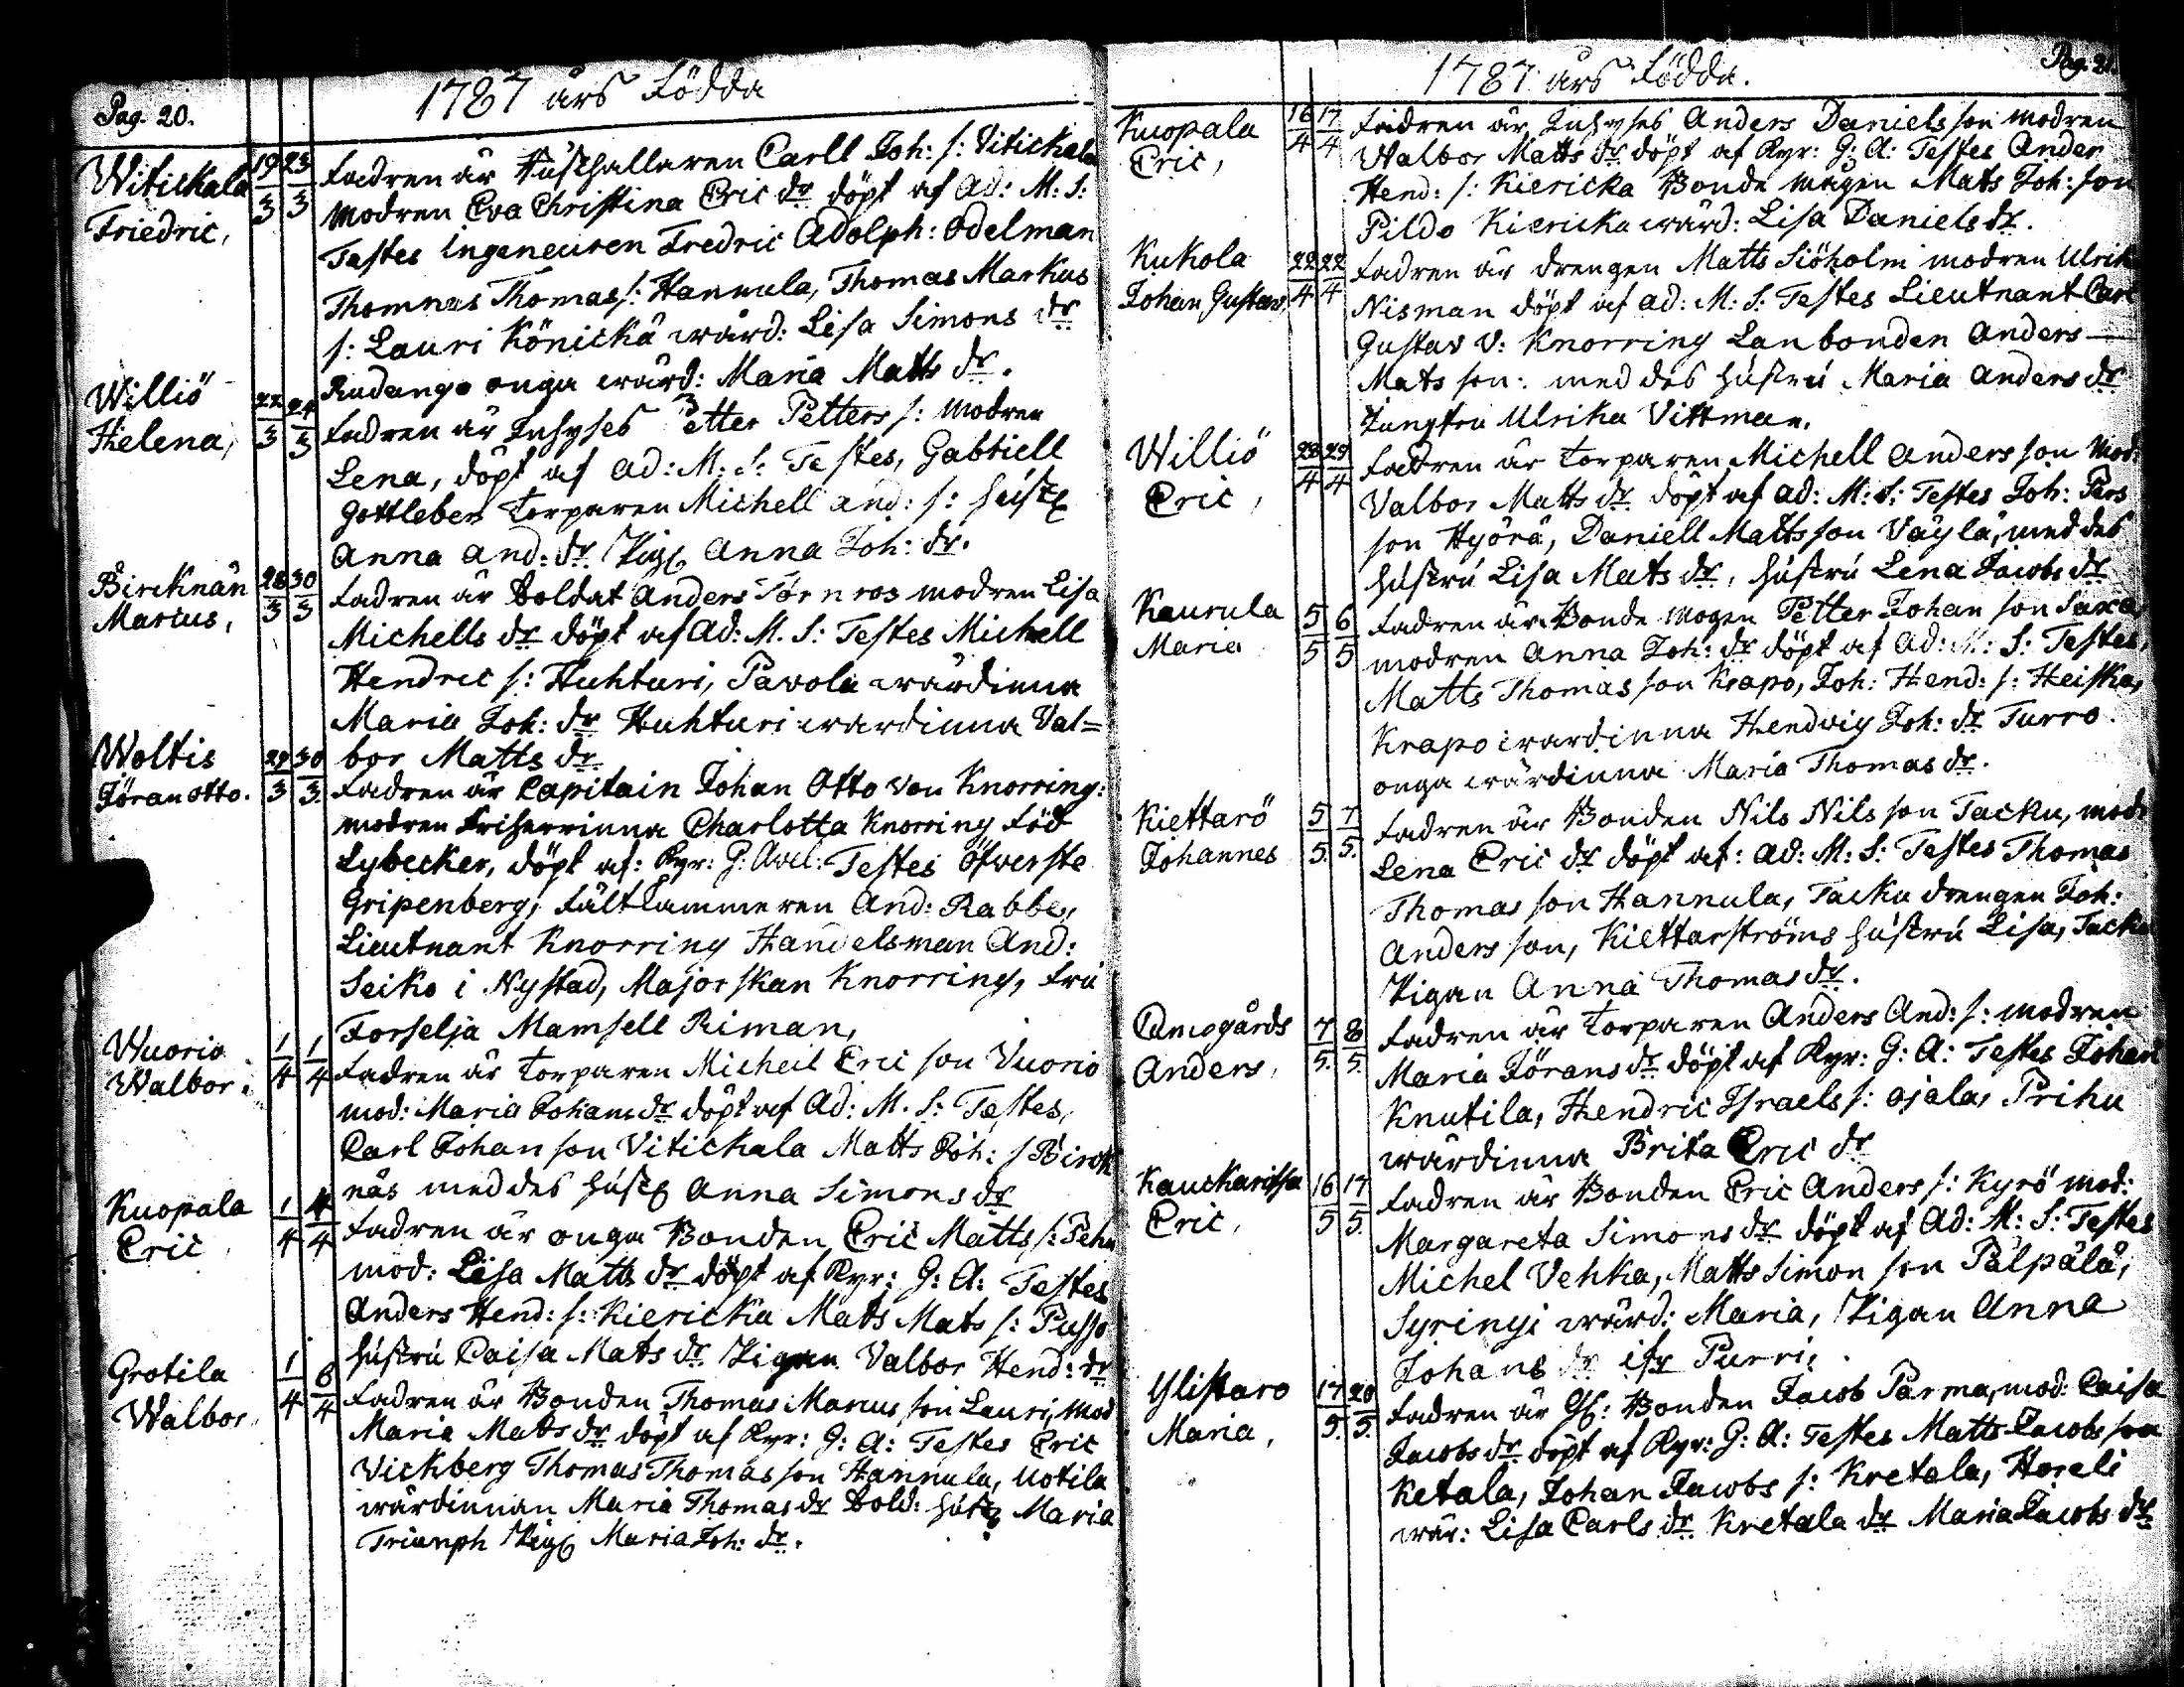 Pag. 20.
1787 års Födda
Witickala 19/3 23/3 Fadren är Rusthallaren Carll Joh: s: Vitickala
Friedric, modren Eva Christina Eric dr döpt af Ad: M: S:
Testes Ingeneuren Fredric Adolph: Odelman
Thomnas Thomas s: Hannula, Thomas Markus
s: Lauri Könickä wärd: Lisa Simons dr
Rudango onga wärd: Maria Matts dr.
Williö 22/3 24/3 Fadren är Inhyses Petter Petters s: modren
Helena, Lena, döpt af Ad: M: S: Testes, Gabriell
Gottleben Torparen Michell And: s: hust
Anna And: dr Pig Anna Joh: dr.
Bircknän 28/3 30/3 Fadren är Soldat Anders Törnros modren Lisa
Marcus, Michells dr döpt af Ad: M. S: Testes Michell
Hendric s: Huhturi, Pavola wärdinna
Maria Joh: dr Huhturi wardinna Val=
bor Matts dr.
Woltis 29/3 30/3 Fadren är Capitain Johan Otto von Knorring:
Jöran Otto. modren Friherrinna Charlotta Knorring Född
Lybecker, döpt af: Kyr: G: Avel: Testes Öfverste
Gripenberg, Fältkammeren And: Rabbe,
Lieutnant Knorring Handelsman And:
Seiko i Nystad, Majorskan Knorring, Fru
Forselja Mamsell Riman,
Wuorio 1/4 1/4 Fadren är Torparen Micheil Eric son Vuorio
Walbor. mod: Maria Johans dr döpt af Ad: M. S: Testes,
Carl Johan son Vitickala Matts Joh: s Birck
näs med des hust Anna Simons dr
Kuopala 1/4 4/4 Fadren är onga Bonden Eric Matts s: Pehu
Eric mod: Lisa Matts dr döpt af Kyr: G: A: Testes
Anders Hend: s: Kiericka Mats Mats s: Pusso
hustru Caisa Mats dr Pigan Valbor Hend: dr
Grotila 1/4 6/4 Fadren är Bonden Thomas Marcus son Lauri, mod
Walbor. Maria Mats dr döpt af Kyr: G: A: Testes Eric
Vickberg Thomas Thomas son Hannula, Uotila
wärdinnan Maria Thomas dr Sold: hust Maria
Triumph Pig Maria Joh: dr.
Pag. 21.
1787 års Födda.
Kuopala 16/4 17/4 Fadren är Inhyses Anders Daniels son modren
Eric, Walbor Matts dr döpt af Kyr: G: A: Testes Ander
Hend: s: Kiericka Bonde mågen Mats Joh: son
Pildo Kiericka wärd: Lisa Daniels dr.
Kukola 22/4 22/4 Fadren är drengen Matts Siöholm modren Ulrik
Johan Gustav, Nisman döpt af Ad: M: S: Testes Lieutnant Carl
Gustav V: Knorring Lanbonden Anders
Mats son: med des hustru Maria Anders dr
Jungfru Ulrika Vittman.
Williö 28/4 29/4 Fadren är Torparen Michell Anders son Mod:
Eric, Valbor Matts dr döpt af Ad: M: S: Testes Joh: Pers
son Hyörä, Daniell Matts son Väylä, med des
hustru Lisa Mats dr, hustru Lena Jacobs dr
Kaurula 5/5 6/5 Fadren är Bonde mogen Petter Johan son Saxa,
Maria modren Anna Joh: dr döpt af Ad: M: S: Testes,
Matts Thomas son Krapo, Joh: Hend: s: Heiska,
Krapo wardinna Hendvig Joh: dr Turro
onga wärdinna Maria Thomas dr.
Kiettarö 5/5. 7/5. Fadren är Bonden Nils Nils son Tacku, mod:
Johannes Lena Eric dr döpt af: Ad: M: S: Testes Thomas
Thomas son Hannula, Tacku drengen Joh:
Anders son, Kiettarströms hustru Lisa, Tacku
Pigan Anna Thomas dr.
7/5. 8/5. Fadren är Torparen Anders And: s: modren
Anders, Maria Jörans dr döpt af Kyr: G: A: Testes Johan
Knutila, Hendric Israels s: Ojala, Prihu
wärdinna Brita Eric dr
Kauckarissa 16/5 17/5. Fadren är Bonden Eric Anders s: Kyrö mod:
Eric, Margareta Simons dr döpt af Ad: M: S: Testes
Michel Vehka, Matts Simon son Pälpälä,
Syringi wärd: Maria, Pigan Anna
Johans dr ifr Purri,
Ylistaro 17/5. 20/5. Fadren är Bonden Jacob Parma, mod: Caisa
Maria, Jacobs dr döpt af Kyr: G: A: Testes Matts Jacobs son
Ketala, Johan Jacobs s: Kretala, Horeli
wär: Lisa Carls dr Kretala dr Maria Jacobs dr